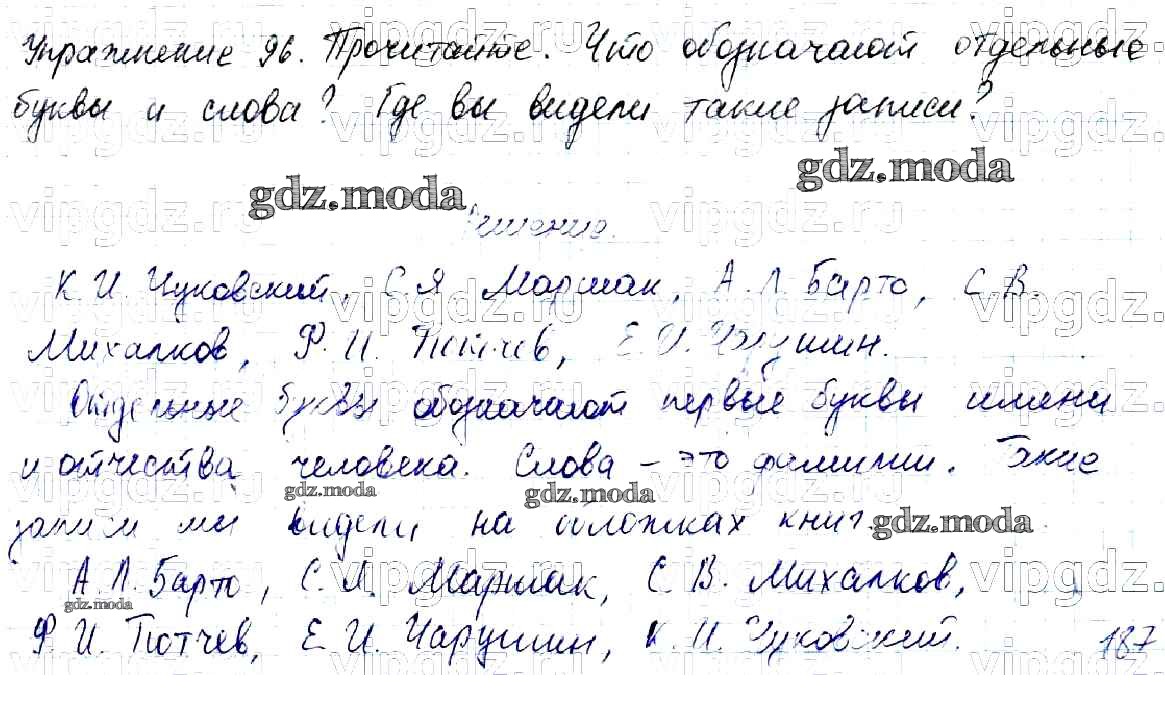 Упражнение 96. Прочитайте. Что обозначают отдельные
буквы и слова? Где вы видели такие записи?
gdz.moda
gdz.moda
Решение.
К. И. Чуковский, С. Я. Маршак, А. Л. Барто, С. В.
Михалков, Ф. И. Тютчев, Е. И. Чарушин.
Отдельные буквы обозначают первые буквы имени
и отчества человека. Слова – это фамилии. Такие
gdz.moda
gdz.moda
записи мы видели на обложках книг.
gdz.moda
А. Л. Барто, С. Я. Маршак, С. В. Михалков,
gdz.moda
Ф. И. Тютчев, Е. И. Чарушин, К. И. Чуковский. 187
vipgdz.ru